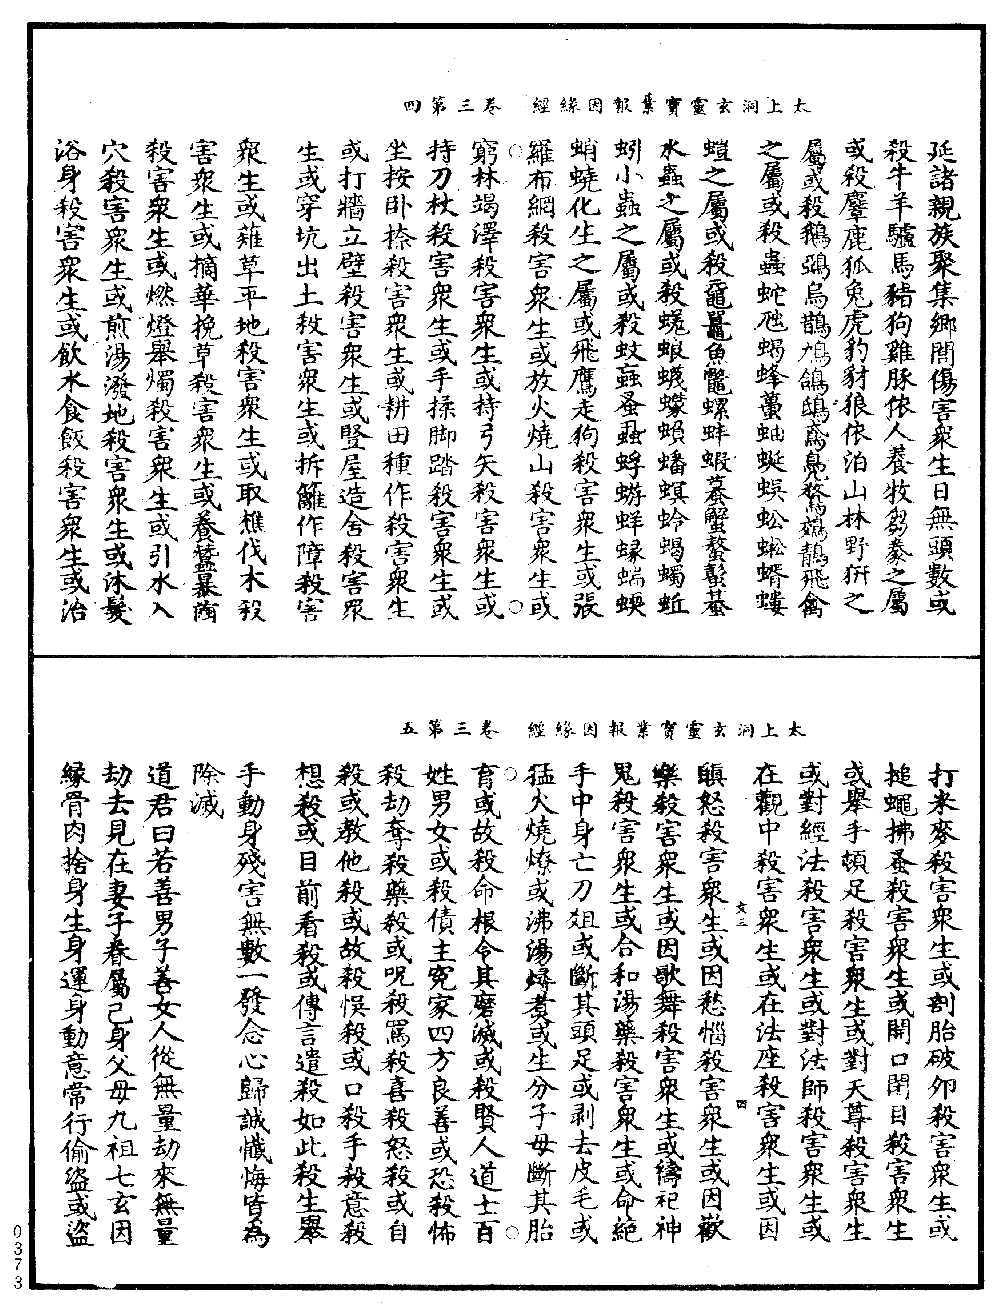 太上洞玄靈寶業報因緣經　卷三第四
延諸親族聚集鄉閭傷害衆生日無頭數或
殺牛羊驢馬猪狗雞豚依人養牧芻豢之屬
或殺麞鹿狐兔虎豹豺狼依泊山林野犴之
屬或殺鵝鴉烏鵲鳩鴿鴟鳶鳧鶩飛禽
之屬或殺蟲蛇虺蝎蜂蠆蚰蜒蜈蚣蜥蜴螻
螘之屬或殺黿鼉魚鼈螺蚌蝦蟇蟹螯
水蟲之屬或殺蜣蜋蠛蠓蠐螬蛉蝎蠋蚯
蚓小蟲之屬或殺蚊蝱蚤蝨蜉蝣蜉蝝蝡
蛸蟯化生之屬或飛鷹走狗殺害衆生或張
羅布網殺害衆生或放火燒山殺害衆生或
窮林竭澤殺害衆生或持弓矢殺害衆生或
持刀杖殺害衆生或手揉脚踏殺害衆生或
坐按卧捺殺害衆生或耕田種作殺害衆生
或打牆立壁殺害衆生或豎屋造舍殺害衆
生或穿坑出土殺害衆生或拆籬作障殺害
衆生或薙草平地殺害衆生或取樵伐木殺
害衆生或摘華挽草殺害衆生或養蠶暴繭
殺害衆生或燃燈舉燭殺害衆生或引水入
穴殺害衆生或煎湯潑地殺害衆生或沐髮
浴身殺害衆生或飲水食飯殺害衆生或治
太上洞玄靈寶業報因緣經　卷三第五
打米麥殺害衆生或剖胎破夘殺害衆生或
搥蠅拂蚤殺害衆生或開口閉目殺害衆生
或舉手頓足殺害衆生或對天尊殺害衆生
或對經法殺害衆生或對法師殺害衆生或
在觀中殺害衆生或在法座殺害衆生或因
文三　四
瞋怒殺害衆生或因愁惱殺害衆生或因歡
樂殺害衆生或因歌舞殺害衆生或禱祀神
鬼殺害衆生或合和湯藥殺害衆生或命絶
手中身亡刀俎或斷其頭足或剥去皮毛或
猛火燒燎或沸湯燖煑或生分子母斷其胎
育或故殺命根令其磨滅或殺賢人道士百
姓男女或殺債主寃家四方良善或恐殺怖
殺劫奪殺藥殺或呪殺罵殺喜殺怒殺或自
殺或教他殺或故殺悮殺或口殺手殺意殺
想殺或目前看殺或傳言遣殺如此殺生舉
手動身殘害無數一發念心歸誠懺悔皆爲
除滅
道君曰若善男子善女人從無量劫來無量
劫去見在妻子眷屬己身父母九祖七玄因
緣骨肉捨身生身運身動意常行偷盜或盜
0373